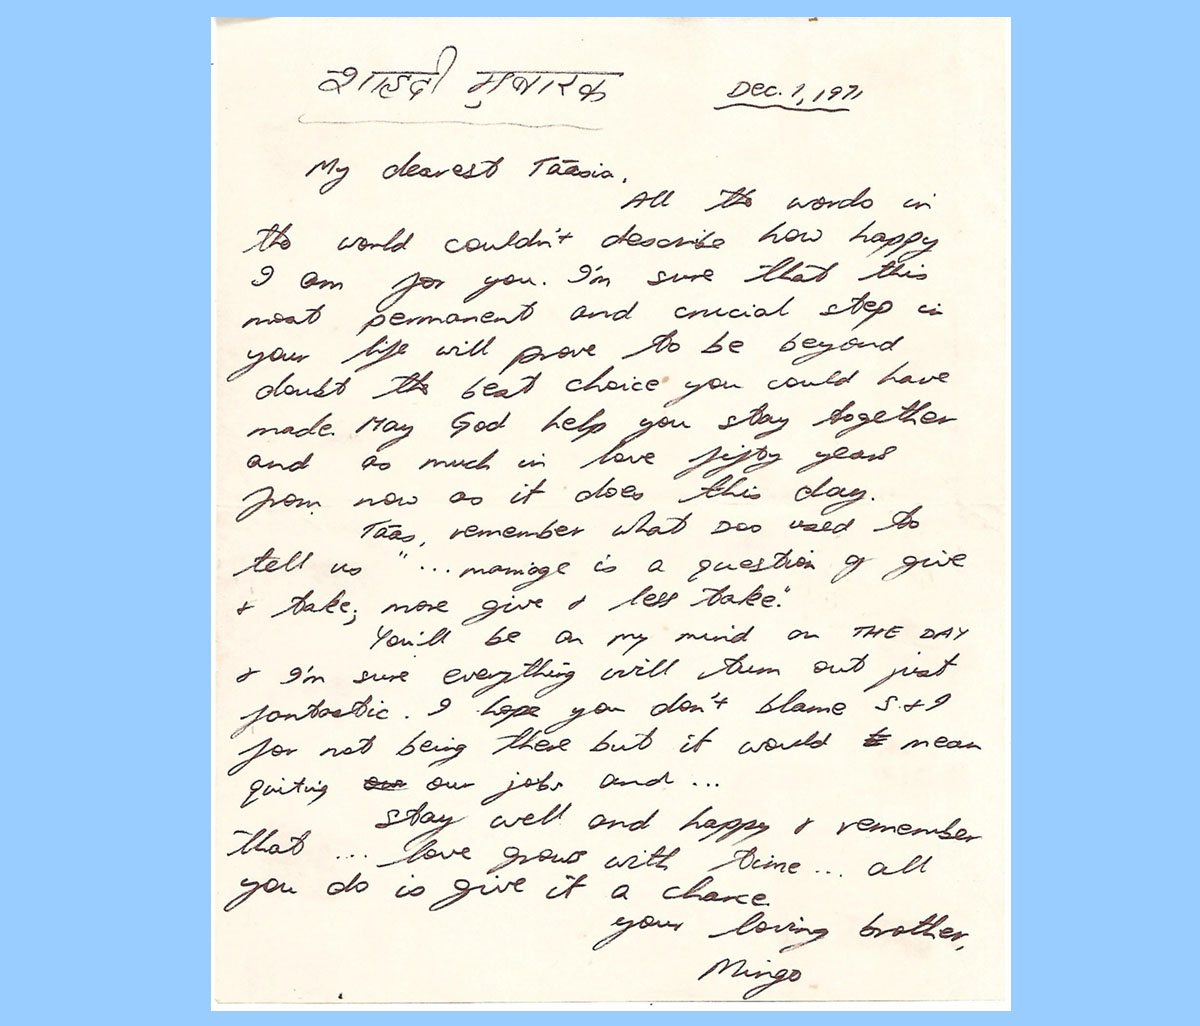 शाहदी मुबारक
Dec. 1, 1971
My dearest Tāasia,
All the words in
the world couldn't describe how happy
I am for you. I'm sure that this
most permanent and crucial step in
your life will prove to be beyond
doubt the best choice you could have
made. May God help you stay together
and as much in love fifty years
from now as it does this day.
Tāas, remember what Doo used to
tell us "... marriage is a question of give
& take; more give & less take."
You'll be on my mind on THE DAY
& I'm sure everything will turn out just
fantastic. I hope you don't blame S. & I
for not being there but it would mean
quiting our jobs and ...
Stay well and happy & remember
that ... love grows with time ... all
you do is give it a chance.
your loving brother,
Mingo